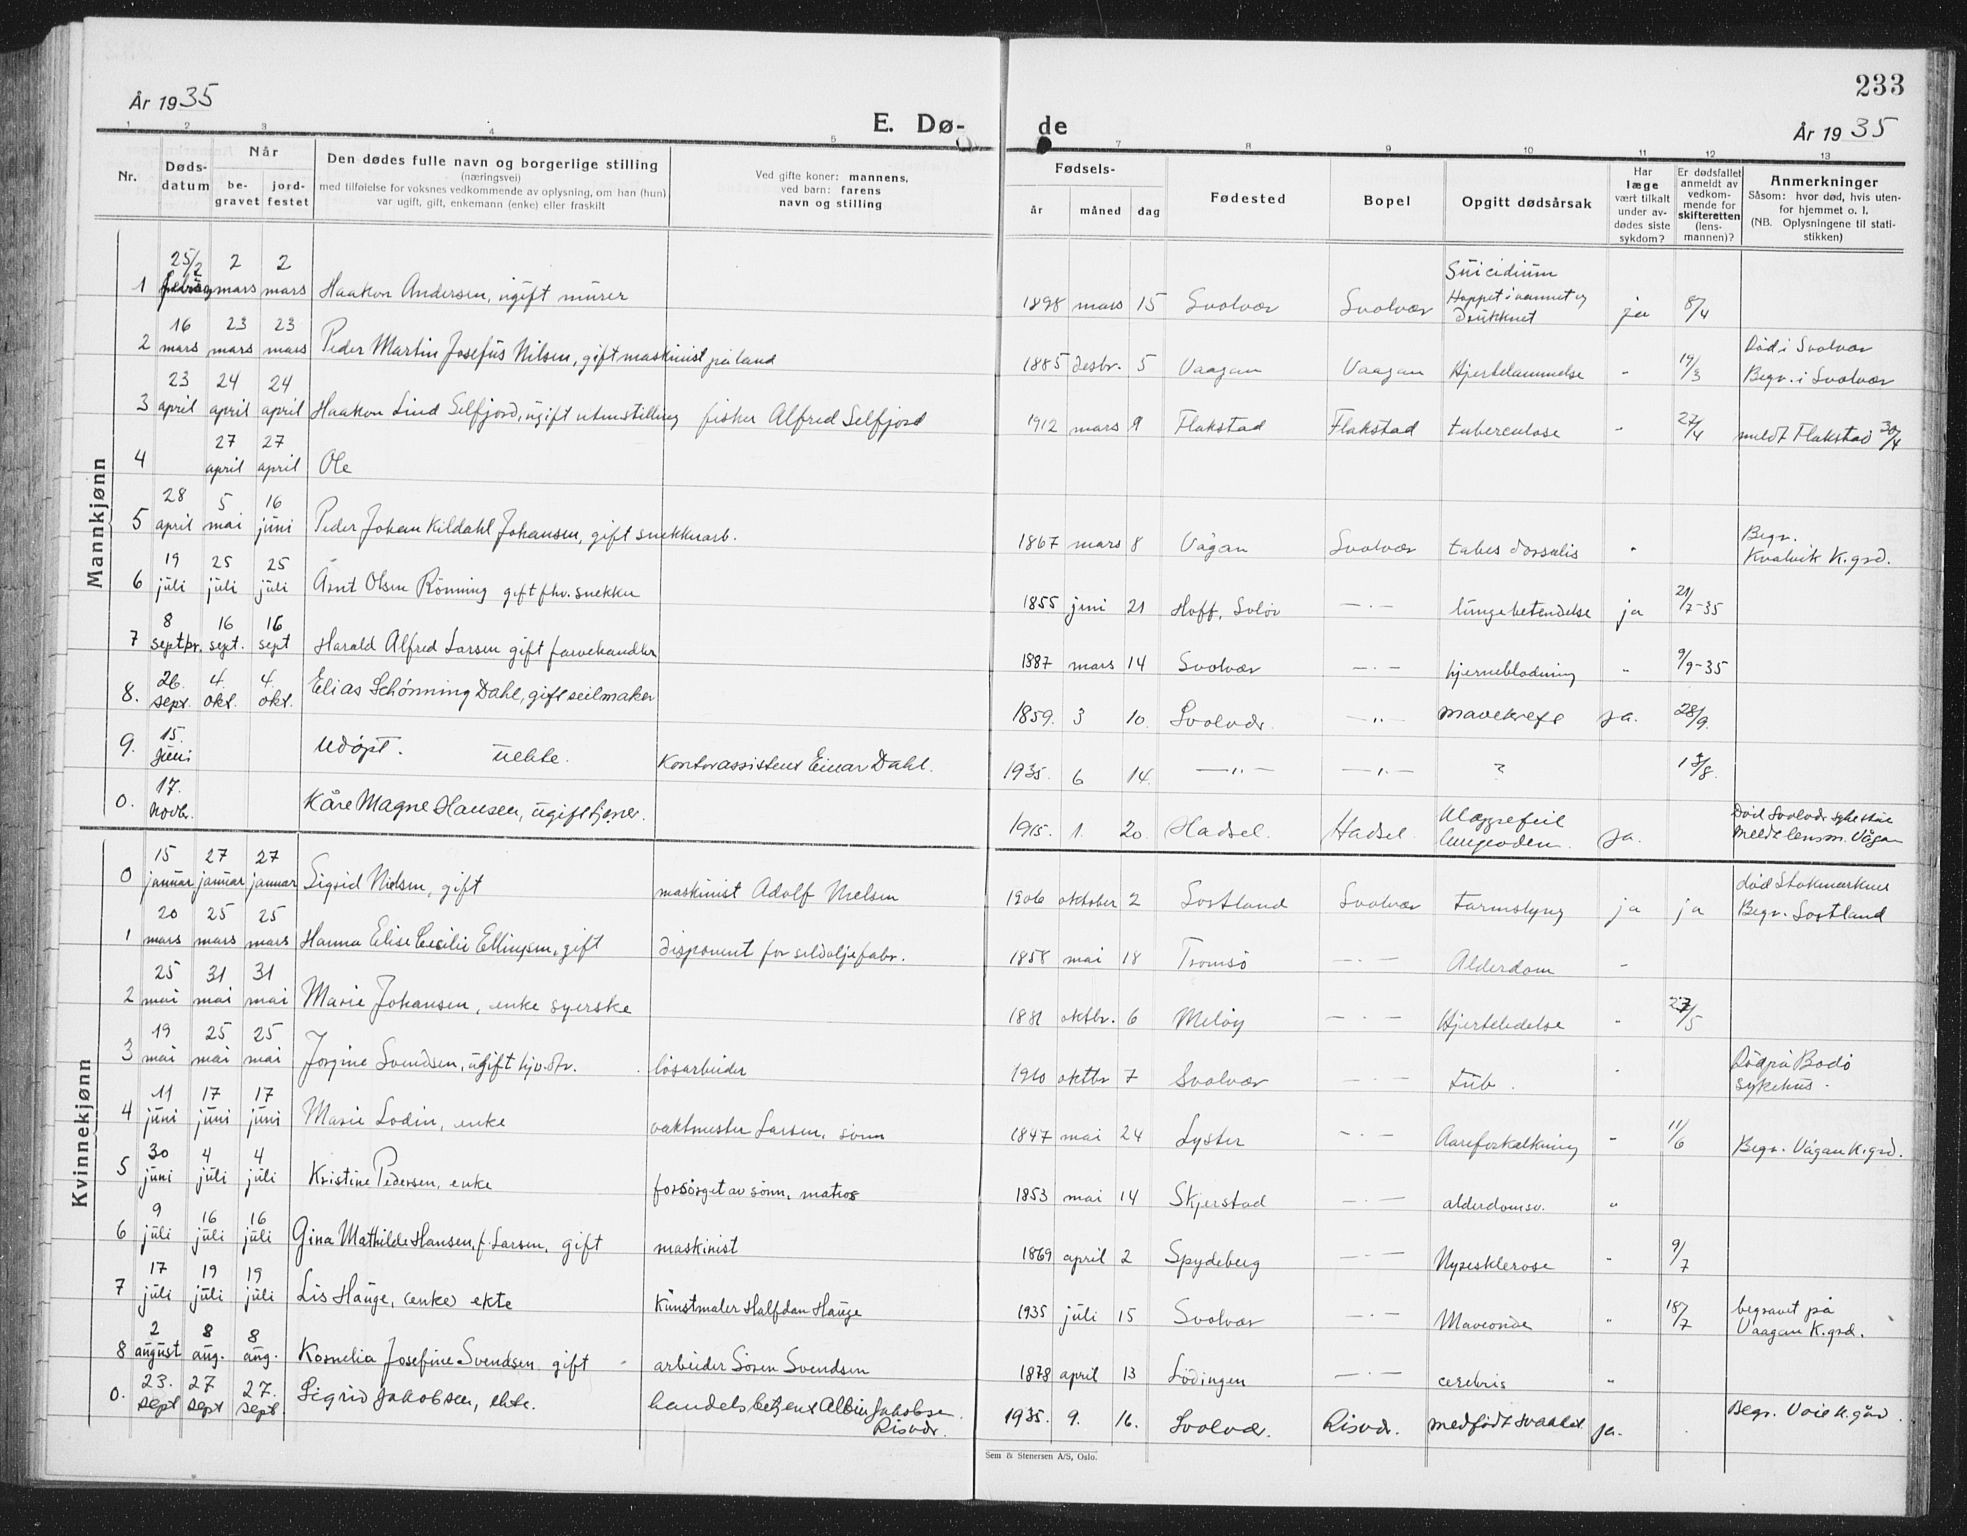 233
År 1935
E. Dø-
de
År 1935
1 2 3 4 5 7 8 9 10 11 12 13
Nr.
Døds-
datum
Når
be-
gravet
jord-
festet
Den dødes fulle navn og borgerlige stilling
(næringsvei)
med tilføielse for voksnes vedkommende av oplysning, om han (hun)
var ugift, gift, enkemann (enke) eller fraskilt
Ved gifte koner: mannens,
ved barn: farens
navn og stilling
Fødsels-
år måned dag
Fødested
Bopel
Opgitt dødsårsak
Har
læge
vært tilkalt
under av-
dødes siste
sykdom?
Er dødsfallet
anmeldt av
vedkom-
mende for
skifteretten
(lens-
mannen)?
Anmerkninger
Såsom: hvor død, hvis uten-
for hjemmet o. l.
(NB. Oplysningene til stati-
stikken)
Mannkjønn
1 25/2 2 mars 2 mars Haakon Andersen, ugift murer 1898 mars 15 Svolvær Svolvær Suicidium
Hoppet i vannet og
Druknet ja 8/4
2 16 mars 23 mars 23 mars Peder Martin Josefus Nilsen, gift maskinist på land 1885 desbr. 5 Vaagan Vaagan Hjertelammelse " 19/3 Død i Svolvær
Begr. i Svolvær
3 23 april 24 april 24 april Haakon Lind Selfjord, ugift uten stilling fisker Alfred Selfjord 1912 mars 9 Flakstad Flakstad tuberculose " 27/4 meldt Flakstad 30/4
4 27 april 27 april Ole
5 28 april 5 mai 16 juni Peder Johan Kildahl Johansen, gift snekkerarb. 1867 mars 8 Vågan Svolvær tabes dorsalis " Begr.
Kvalvik K.grd.
6 19 juli 25 juli 25 juli Arnt Olsen Rönning gift fhv. snekker 1855 juni 21 Hoff, Solör — . — lungebetendelse ja 21/7-35
7 8 septbr. 16 sept. 16 sept Harald Alfred Larsen gift farvehandler 1887 mars 14 Svolvær — . — hjerneblødning " 9/9-35
8. 26. sept. 4. okt. 4. okt. Elias Schønning Dahl, gift seilmaker 1859. 3 10. Svolvær. — " — mavekreft ja. 28/9.
9. 15. juni Udøpt. uekte. Kontorassistent Einar Dahl. 1935. 6 14. — " — — " — ? 13/8.
0. 17. novbr. Kåre Magne Hansen, ugift tjener. 1915. 1. 20. Hadsel. Hadsel. Klappefeil
lungeødem. ja. Död Svolvær sykestue
meldt lensm. Vågan
Kvinnekjønn
0 15 januar 27 januar 27 januar Sigrid Nielsen, gift maskinist Adolf Nielsen 1906 oktober 2 Sortland Svolvær Tarmslyng ja ja död Stokmarknes
Begr. Sortland
1 20 mars 25 mars 25 mars Hanna Elise Cecilie Ellingsen, gift disponent for sildoljefabr. 1858 mai 18 Tromsö — . — Alderdom "
2 25 mai 31 mai 31 mai Marie Johansen, enke syerske 1881 oktbr. 6 Melöy — . — Hjertelidelse " 27/5
3 19 mai 25 mai 25 mai Jorgine Svendsen, ugift hjv. dtr. løsarbeider 1910 oktbr 7 Svolvær — . — tub. " Död på Bodö
sykehus.
4 11 juni 17 juni 17 juni Marie Lodin, enke vaktmester Larsen, sönn 1847 mai 24 Lyster — . — Aareforkalkning " 11/6 Begr. Vågan K.grd.
5 30 juni 4 juli 4 juli Kristine Pedersen, enke forsörget av sönn, matros 1853 mai 14 Skjerstad — . — alderdomsv. "
6 9 juli 16 juli 16 juli Gina Mathilde Hansen, f. Larsen, gift maskinist 1869 april 2 Spydeberg — . — Nyresklerose " 9/7
7 17 juli 19 juli 19 juli Lis Hauge, (enke) ekte Kunstmaler Halfdan Hauge 1935 juli 15 Svolvær — . — Maveonde " 18/7 begravet på
Vaagan K.grd.
8 2 august 8 aug. 8 aug. Kornelia Josefine Svendsen gift arbeider Sören Svendsen 1878 april 13 Lödingen — . — cerebris "
0. 23. sept 27 sept 27. sept. Sigrid Jakobsen, ekte. handelsbetjent Albin Jakobsen
Risvær. 1935. 9. 16. Svolvær. Risvær. medfødt svakhet ja. Begr. Voie K.gård.
Sem & Stenersen A/S, Oslo.